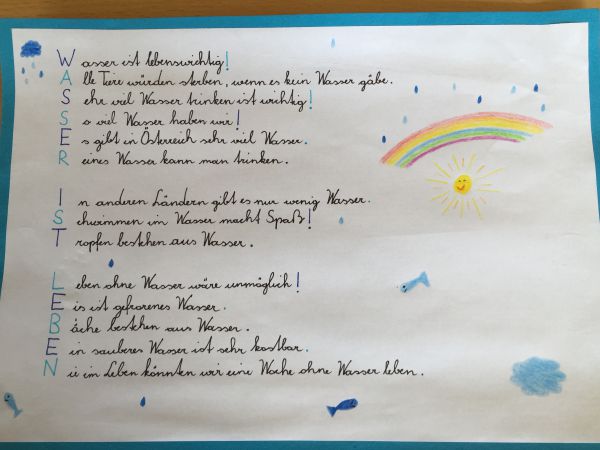 Wasser ist lebenswichtig!
Alle Tiere würden sterben, wenn es kein Wasser gäbe.
Sehr viel Wasser trinken ist wichtig!
So viel Wasser haben wir!
Es gibt in Österreich sehr viel Wasser.
Reines Wasser kann man trinken.
In anderen Ländern gibt es nur wenig Wasser.
Schwimmen im Wasser macht Spaß!
Tropfen bestehen aus Wasser.
Leben ohne Wasser wäre unmöglich!
Eis ist gefrorenes Wasser.
Bäche bestehen aus Wasser.
Ein sauberes Wasser ist sehr kostbar.
Nie im Leben könnten wir eine Woche ohne Wasser leben.